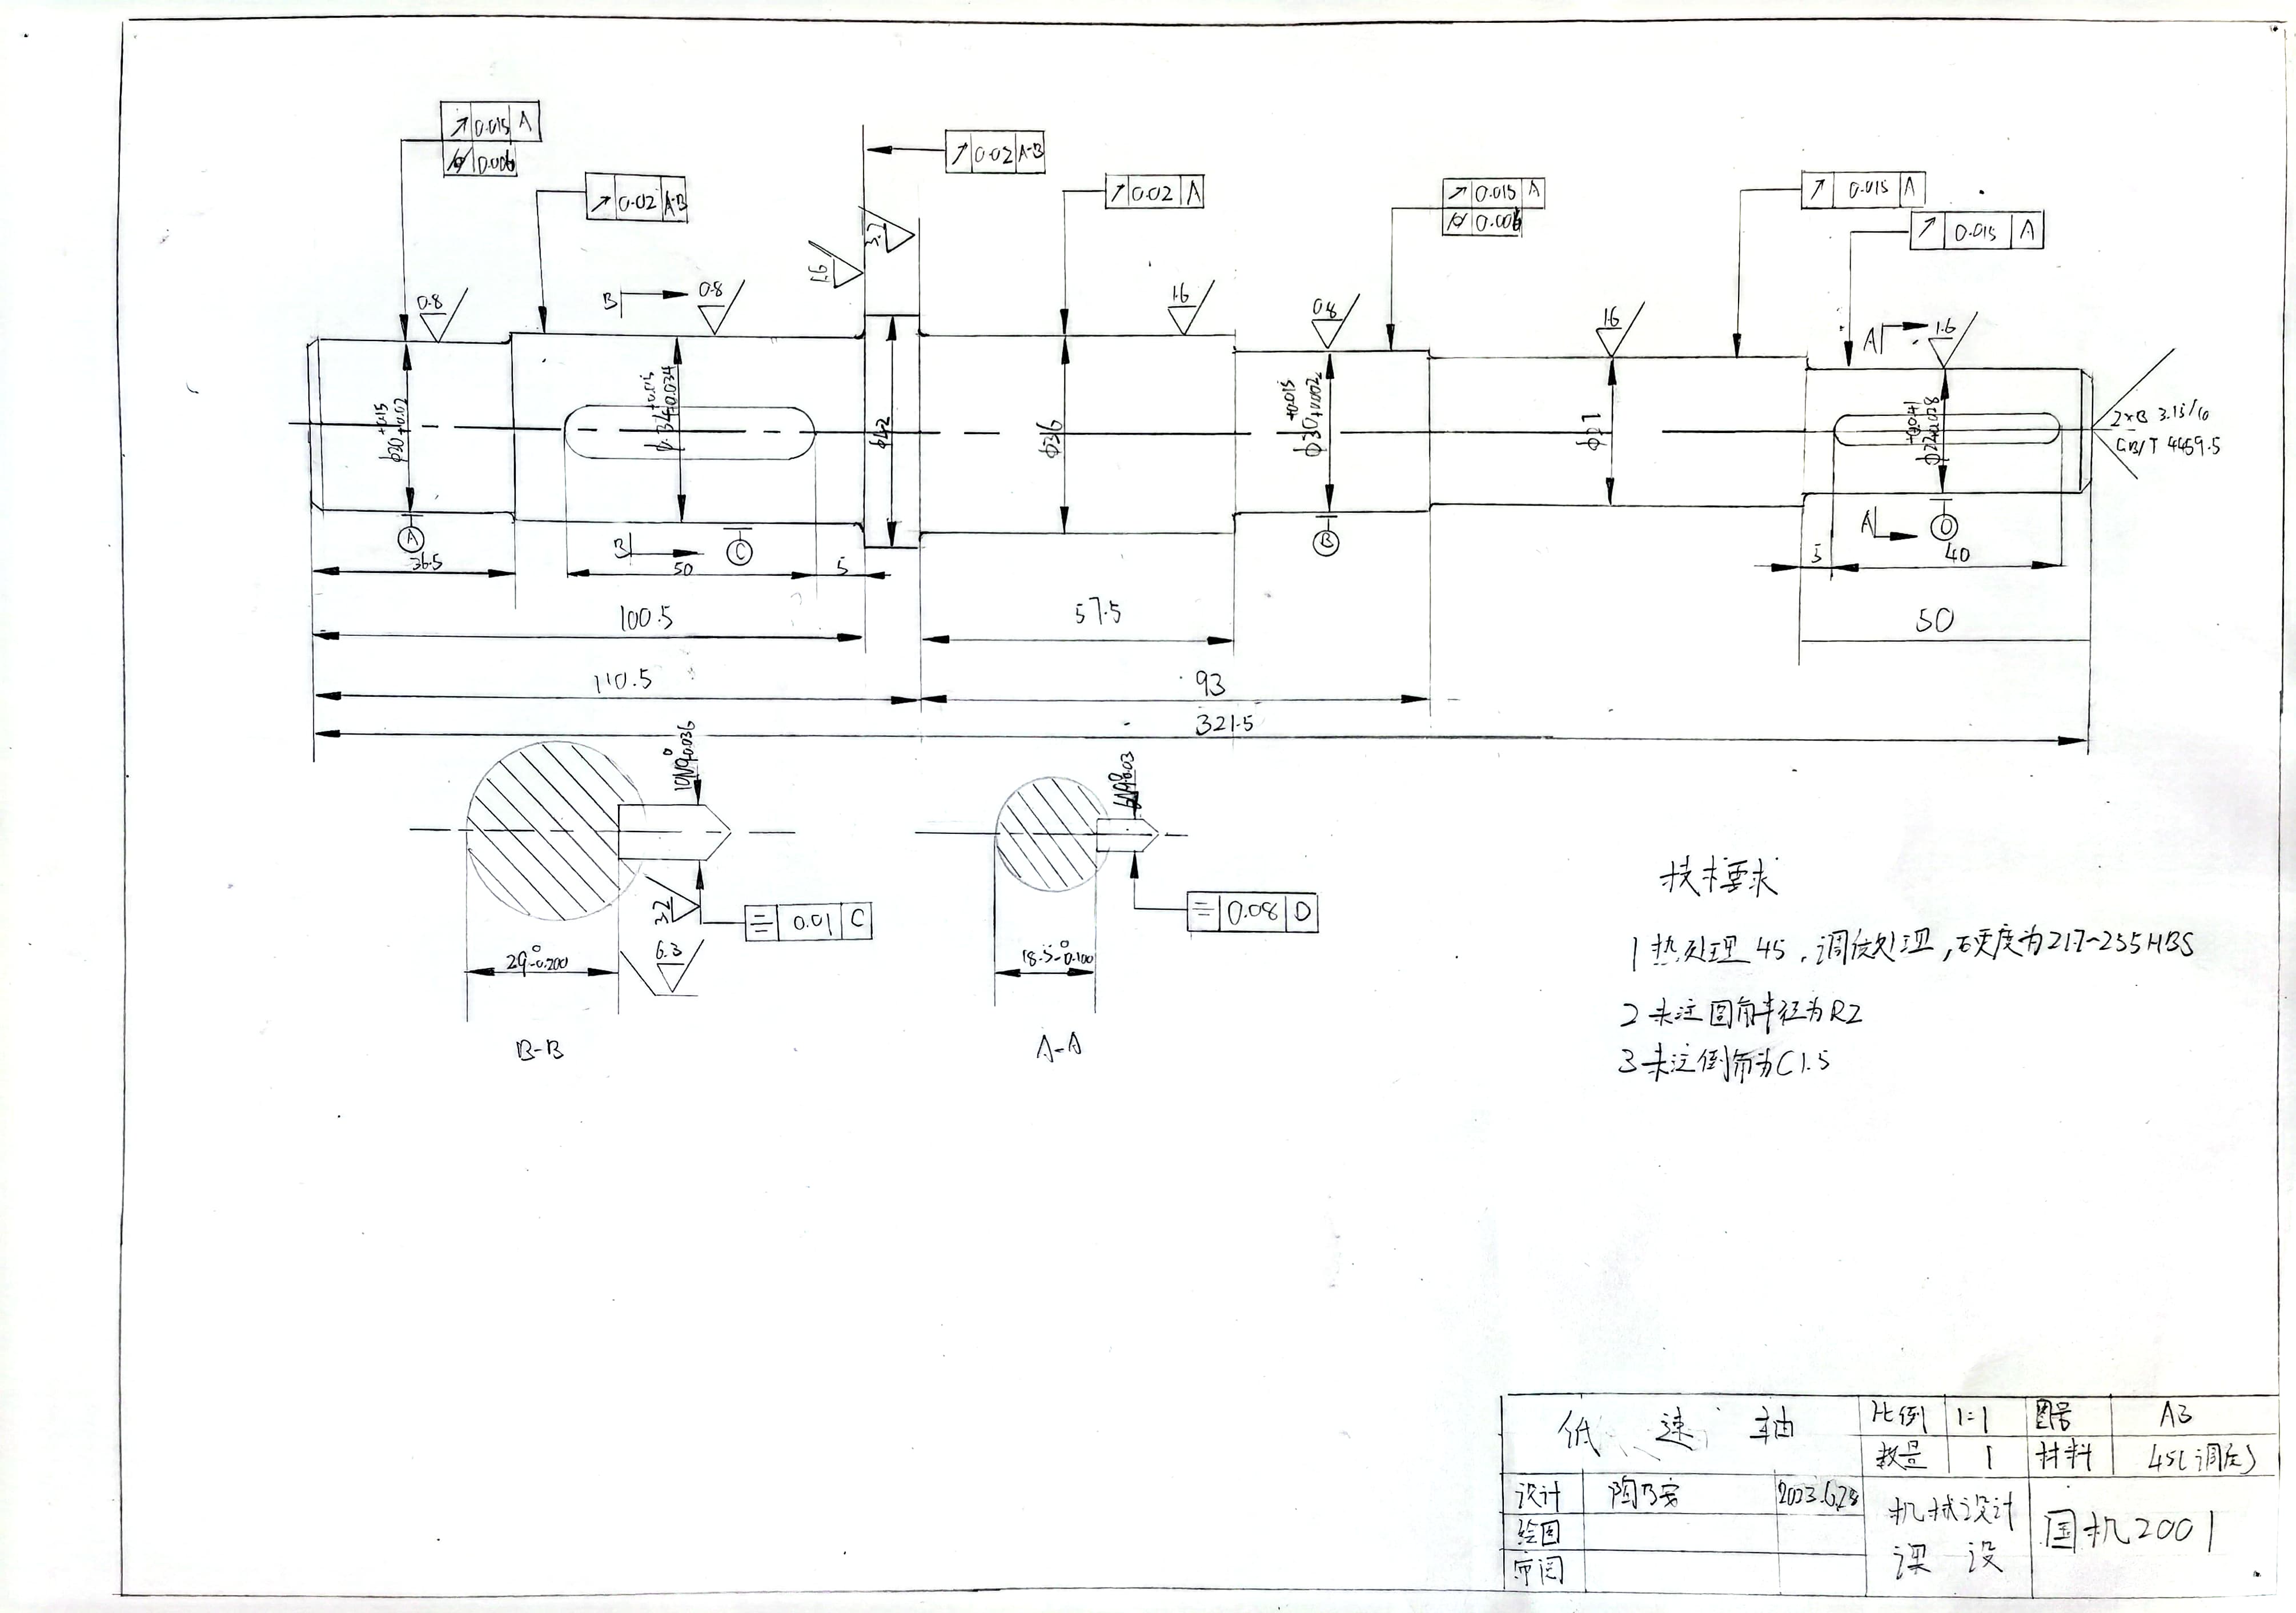 ↗ 0.015 A
⌭ 0.006
↗ 0.02 A-B
↗ 0.02 A-B
↗ 0.02 A
↗ 0.015 A
⌭ 0.006
↗ 0.015 A
↗ 0.015 A
0.8
B
0.8
1.6
3.2
1.6
0.8
1.6
A
1.6
ϕ30 +0.15 +0.02
ϕ34 +0.015 +0.034
ϕ42
ϕ36
ϕ30 +0.015 +0.002
ϕ27
2×B 3.15/10
GB/T 4459.5
A
B
C
B
A
D
36.5
50
5
5
40
100.5
57.5
50
110.5
93
321.5
10N9 0 -0.036
3.2
⌯ 0.01 C
6.3
29 0 -0.200
B-B
⌯ 0.08 D
18.5 0 -0.100
A-A
技术要求
1 热处理 45，调质处理，硬度为217~255HBS
2 未注圆角半径为R2
3 未注倒角为C1.5
低 速 轴
比例 1:1 图号 A3
数量 1 材料 45(调质)
设计 2023.6.28
绘图
审阅
机械设计
课 设
国机2001